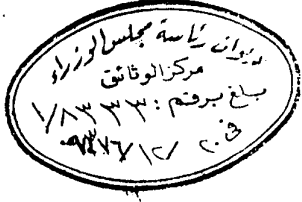 ديوان رئاسة مجلس الوزراء
مركز الوثائق
بلغ برقم : ١/٨٣٣٣
في ٢٠/١٢/